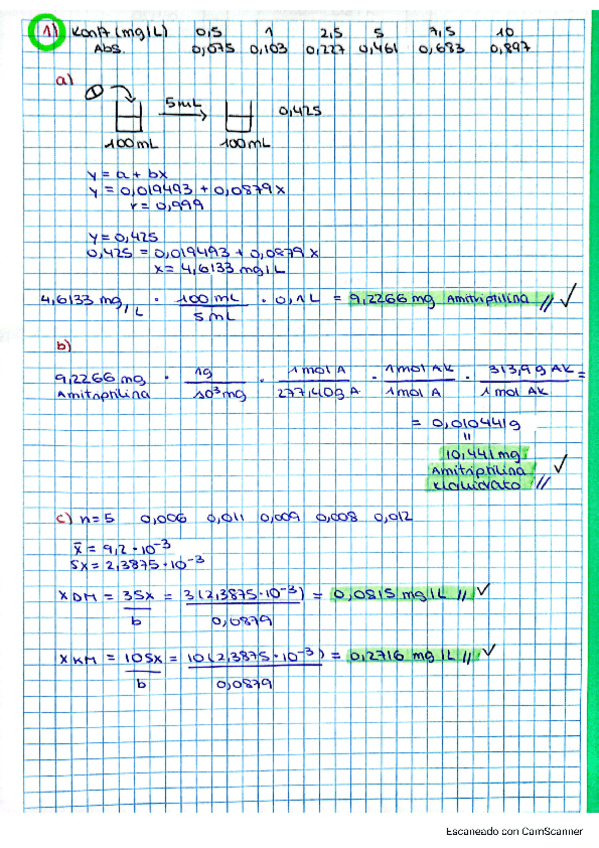 1) Kontz (mg/L) 0,5 1 2,5 5 7,5 10
Abs. 0,075 0,103 0,227 0,461 0,683 0,897
a)
5mL 0,425
100mL 100mL
y = a + bx
y = 0,019493 + 0,0879x
r = 0,999
y = 0,425
0,425 = 0,019493 + 0,0879 x
x = 4,6133 mg/L
4,6133 mg/L · 100 mL / 5 mL · 0,1 L = 9,2266 mg Amitriptilina // ✓
b)
9,2266 mg Amitriptilina · 1g / 10³ mg · 1 mol A / 277,40g A · 1 mol AK / 1 mol A · 313,9 g AK / 1 mol AK =
= 0,010441g
=
10,441 mg
Amitriptilina ✓
Kloridrato //
c) n=5 0,006 0,011 0,009 0,008 0,012
x̄ = 9,2 · 10⁻³
Sx = 2,3875 · 10⁻³
XDM = 3Sx / b = 3(2,3875·10⁻³) / 0,0879 = 0,0815 mg/L // ✓
XKM = 10Sx / b = 10(2,3875·10⁻³) / 0,0879 = 0,2716 mg/L // ✓
Escaneado con CamScanner